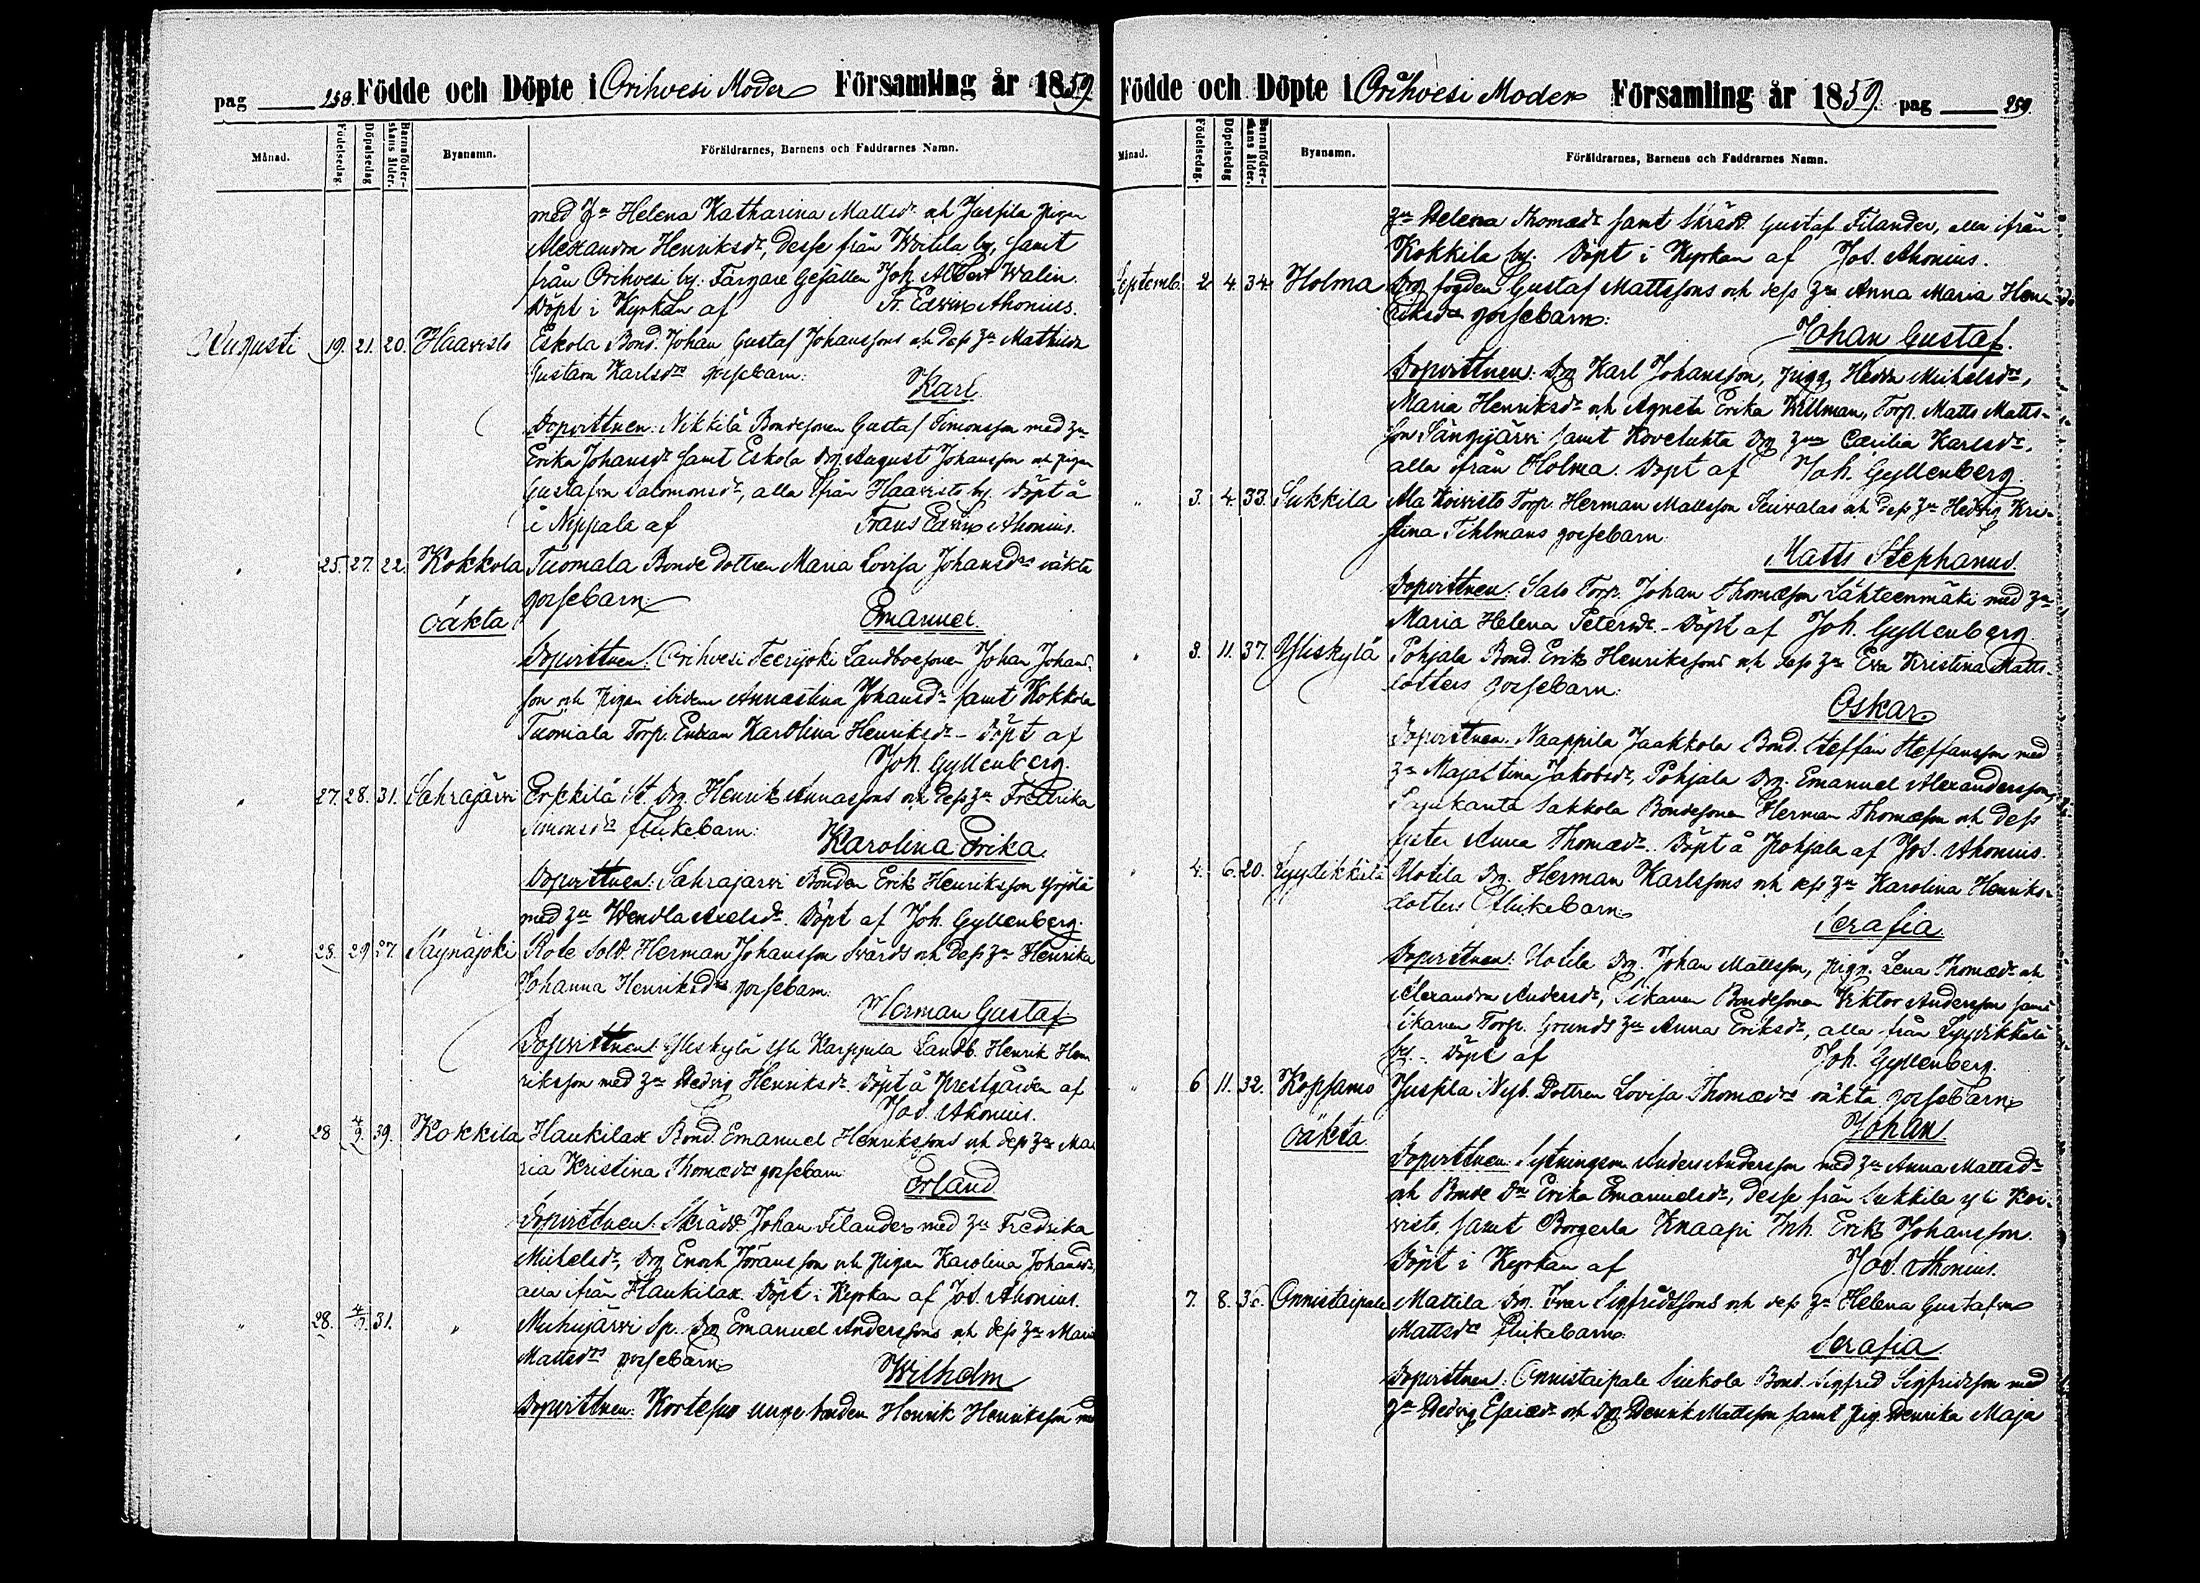 pag 258. Födde och Döpte i Orihvesi Moder Församling år 1859
Månad. Födelsedag Döpelsedag Barnaföderskans ålder. Byanamn. Föräldrarnes, Barnens och Faddrarnes Namn.
med Hu Helena Katharina Mattsdr och Juspila pigan
Alexandra Henriksdr, desse från Woitila by, samt
från Orihvesi by. Färgare Gesällen Joh. Albert Walin.
Döpt i Kyrkan af Fr. Edvin Ahonius.
Augusti 19. 21. 20. Haavisto Eskola Bond. Johan Gustaf Johanssons och dess Hu Mathilda
Gustava Karlsdrs gossebarn: Karl
Dopvittnen: Nikkilä Bondesonen Gustaf Simonsson med Hu
Erika Johansdr samt Eskola Drg August Johansson och pigan
Gustafva Salomonsdr, alla ifrån Haavisto by. Döpt å
i Neppala af Frans Edvin Ahonius.
" 25. 27. 22. Kokkola Tuomala Bonde dottren Maria Lovisa Johansdrs oäkta
gossebarn:
oäkta Emanuel.
Dopvittnen: Orihvesi Teerijoki Landboesonen Johan Johans-
son och Pigan ibidem Annastina Johansdr samt Kokkola
Tuomala Torp. Enkan Karolina Henriksdr - Döpt af
Joh. Gyllenberg.
" 27. 28. 31. Sahrajärvi Erkkilä St. Drg. Henrik Annassons och dess Hu Fredrika
Simonsdrs flickebarn: Karolina Erika.
Dopvittnen: Sahrajärvi Bonden Erik Henriksson Yrjölä
med Hu Wendla Axelsdr. Döpt af Joh. Gyllenberg.
" 28. 29 27. Säynäjoki Rote Sold. Herman Johansson Svärds och dess Hu Henrika
Johanna Henriksdrs gossebarn:
Herman Gustaf.
Dopvittnen: Yliskylä Yli Karppula Landb. Henrik Hen-
riksson med Hu Hedvig Henriksdr. Döpt å Prestgården af
Jos. Ahonius.
" 28 4/9. 39. Kokkila Haukilax Bond. Emanuel Henrikssons och dess Hu Ma-
ria Kristina Thomædrs gossebarn Erland
Dopvittnen: Skrädd. Johan Filander med Hu Fredrika
Michelsdr, Drg Enoch Göransson och Pigan Karolina Johansdr,
alla ifrån Haukilax. Döpt i Kyrkan af Jos. Ahonius.
" 28. 4/9. 31. " Muhujärvi Sp. Drg Emanuel Anderssons och dess Hu Maria
Mattsdrs gossebarn: Wilhelm
Dopvittnen: Kortesuo unge bonden Henrik Henriksson med
Födde och Döpte i Orihvesi Moder Församling år 1859. pag 259.
Månad. Födelsedag. Döpelsedag. Barnaföderskans ålder. Byanamn. Föräldrarnes, Barnens och Faddrarnes Namn.
Hu Helena Thomædr samt Skrädd. Gustaf Filander, alla ifrån
Kokkila by. Döpt i Kyrkan af Jos. Ahonius.
Septemb. 2 4 34. Holma Drg fogden Gustaf Mattssons och dess Hu Anna Maria Hen-
riksdrs gossebarn:
Johan Gustaf.
Dopvittnen: Drg Karl Johansson, Pigg. Hedda Michelsdr,
Maria Henriksdr och Agneta Erika Willman, Torp. Matts Matts-
son Sängijärvi samt Koveluhta Drg Hu Cæcilia Karlsdr.
alla ifrån Holma. Döpt af Joh. Gyllenberg.
" 3. 4. 33. Sukkila Ala Koivisto Torp. Herman Mattsson Teivalas och dess Hu Hedvig Kri-
stina Tihlmans gossebarn:
Matts Stephanus.
Dopvittnen: Salo Torp. Johan Thomæson Lähteenmäki med Hu
Maria Helena Petersdr. - Döpt af Joh. Gyllenberg.
" 3. 11. 37. Yliskylä Pohjala Bond. Erik Henrikssons och dess Hu Eva Kristina Matts-
dotters gossebarn:
Oskar.
Dopvittnen: Naappila Jaakkola Bond. Steffan Steffansson med
Hu Majastina Jakobsdr, Pohjala Drg. Emanuel Alexandersson,
Sakkola Bondesonen Herman Thomæson och dess
syster Anna Thomædr. Döpt å Pohjala af Jos. Ahonius.
" 4. 6. 20. Lyydikkälä Uotila Drg. Herman Karlssons och dess Hu Karolina Henriks-
dotters flickebarn:
Serafia.
Dopvittnen: Uotila Drg. Johan Mattsson, Pigg. Lena Thomædr och
Alexandra Andersdr, Sikanen Bondesonen Viktor Andersson samt
Sikanen Torp. Grunds Hu Anna Eriksdr, alla från Lyydikkälä
by. - Döpt af Joh. Gyllenberg.
" 6 11. 32. Kopsamo Juspila Nyb. Dottren Lovisa Thomædrs oäkta gossebarn:
oäkta. Johan.
Dopvittnen: Sytningsm. Anders Andersson med Hu Anna Mattsdr
och Bonde Dr Erika Emanuelsdr, desse från Sukkila yli Koi-
visto, samt Borgerla Knaapi Inh. Erik Johansson.
Döpt i Kyrkan af Jos. Ahonius.
7. 8. 36. Onnistaipale Mattila Drg. Ivar Sigfridssons och dess Hu Helena Gustafva
Mattsdrs flickebarn:
Serafia.
Dopvittnen: Onnistaipale Suckola Bond. Sigfrid Sigfridsson med
Hu Hedvig Esaiædr och Drg Henrik Mattsson samt Pig. Henrika Maja